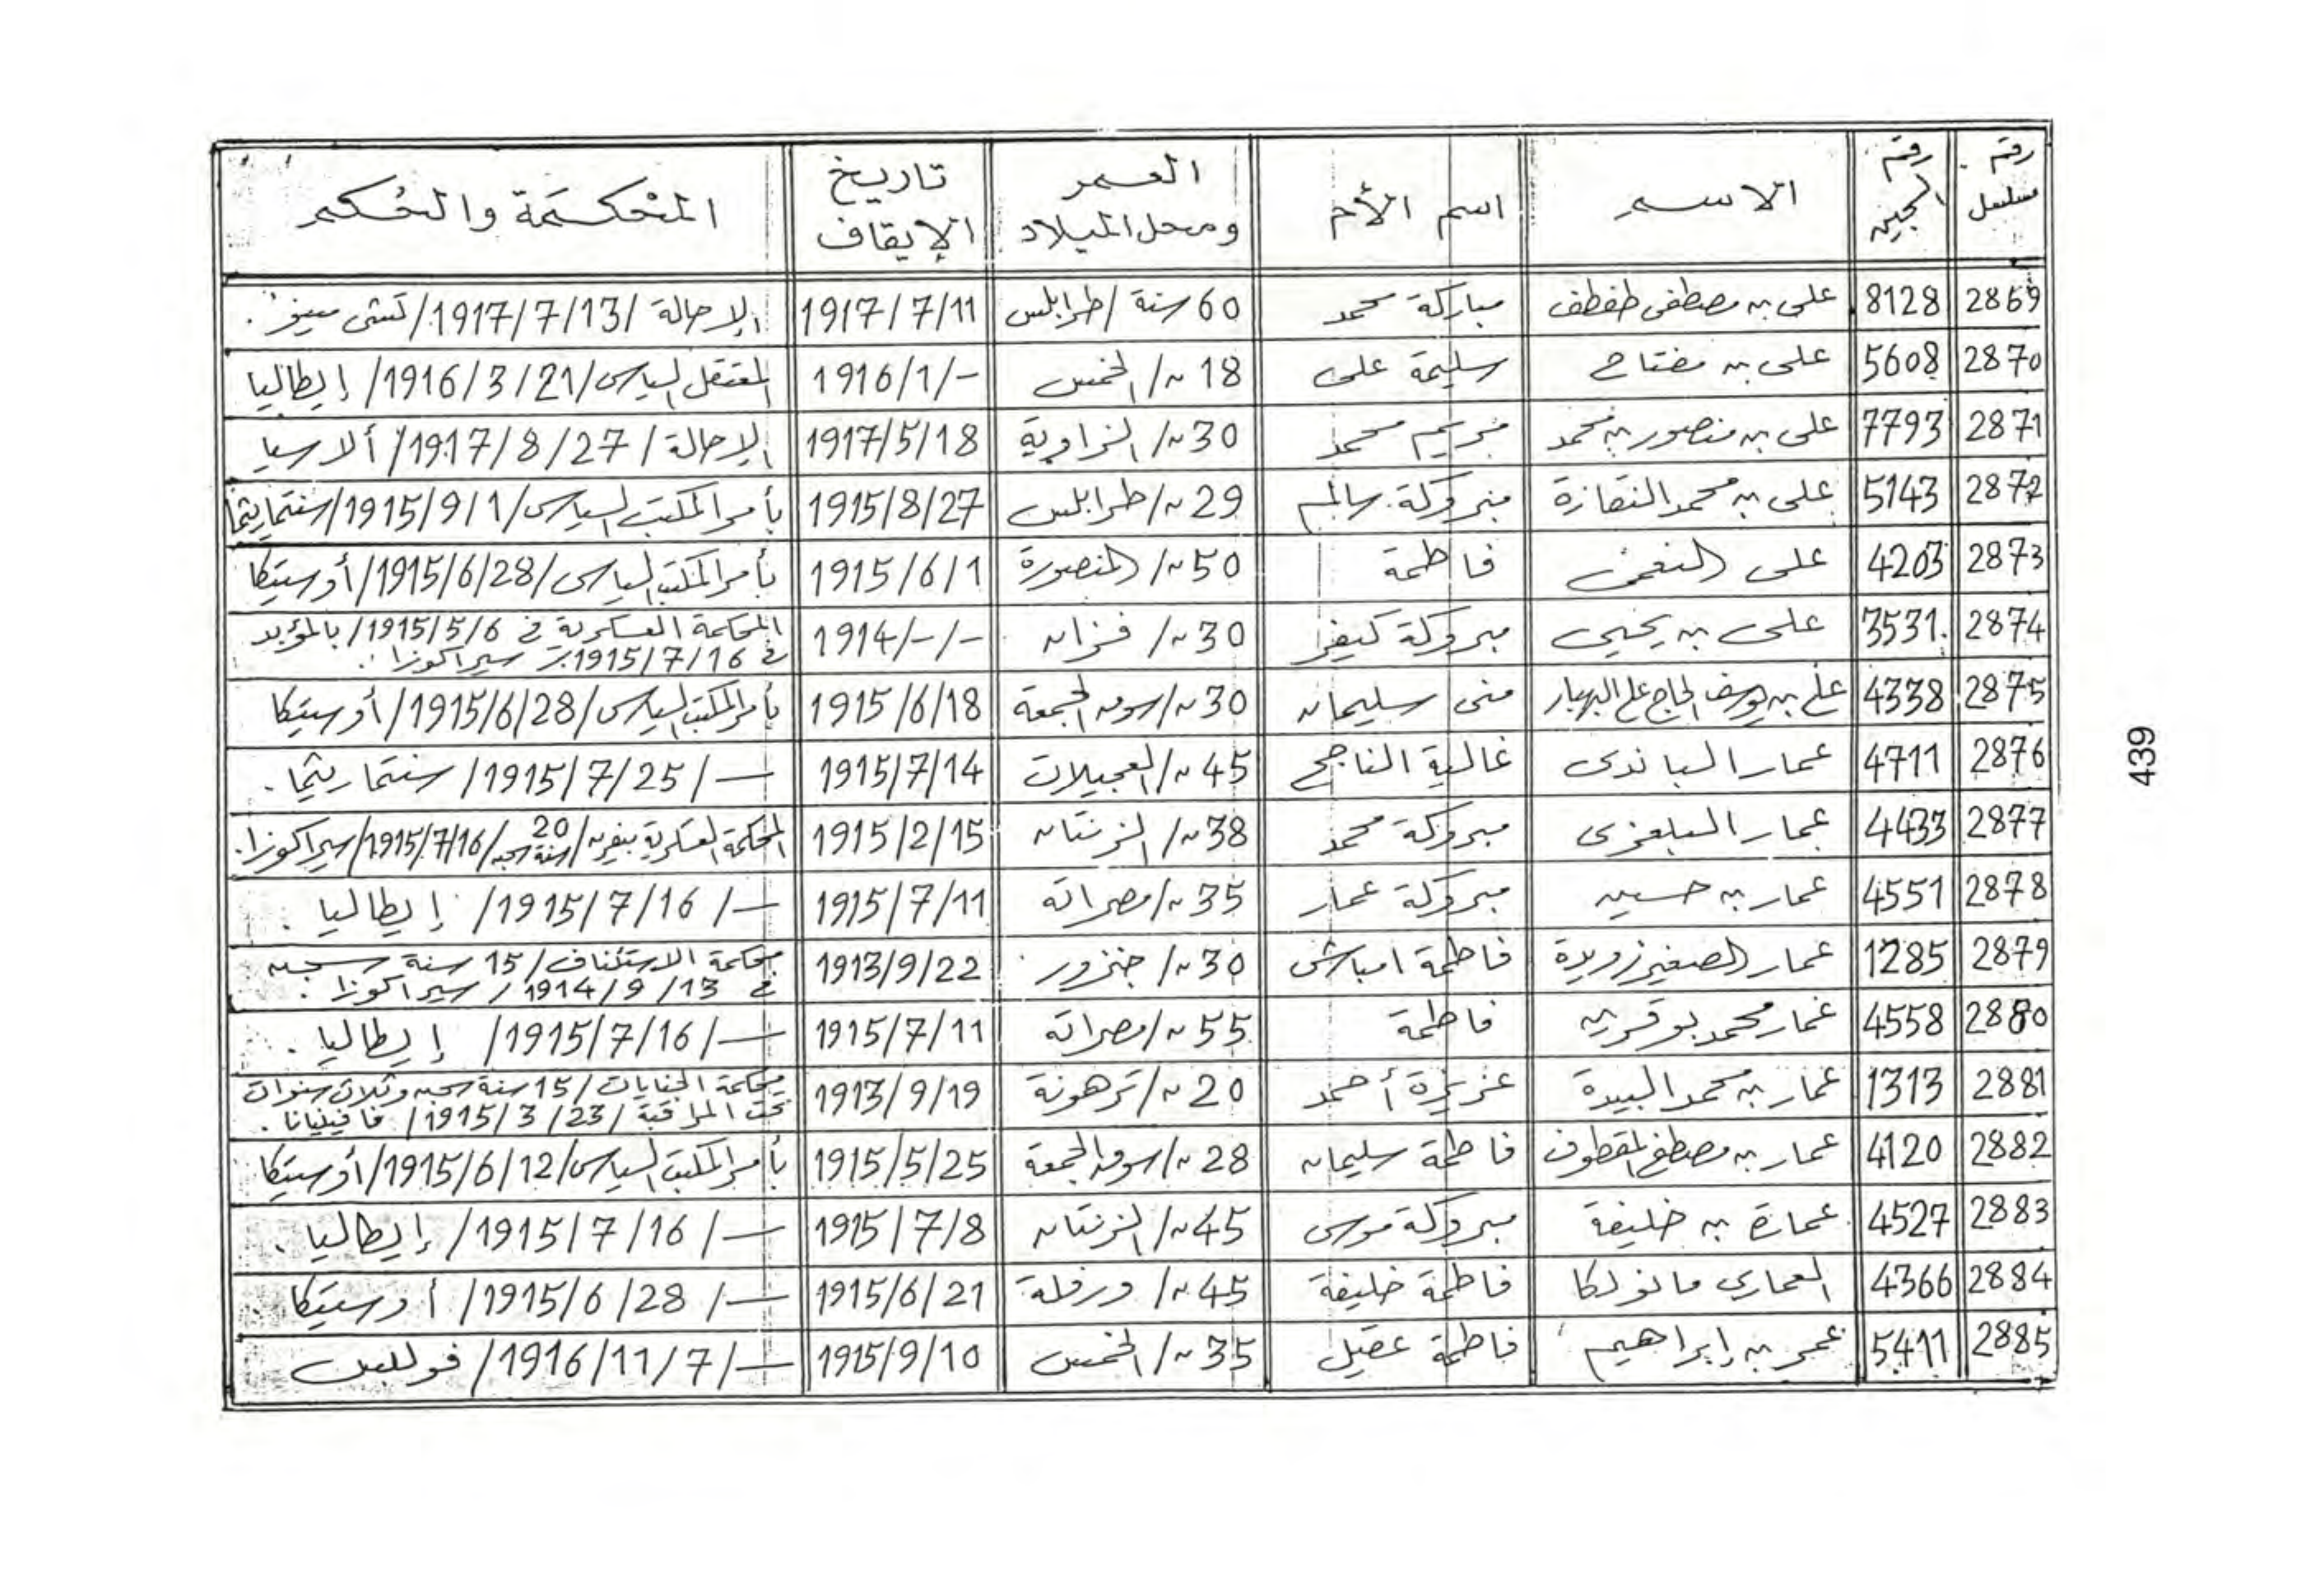 رقم مسلسل | رقم السجين | الاسم | اسم الأم | العمر ومحل الميلاد | تاريخ الإيقاف | المحكمة والحكم
2869 | 8128 | على بن مصطفى طفطف | مباركة محمد | 60 سنة / طرابلس | 1917/7/11 | الإحالة / 1917/7/13 /
2870 | 5608 | على بن مفتاح | سليمة على | 18 ~/ الخمس | 1916/1/- | المعتقل السياسى / 1916/3/21 / إيطاليا
2871 | 7793 | على بن منصور بن محمد | مريم محمد | 30 ~/ الزاوية | 1917/5/18 | الإحالة / 1917/8/27 / ألا سيا
2872 | 5143 | على بن محمد النقازة | مبروكة سالم | 29 ~/ طرابلس | 1915/8/27 | بأمر المكتب السياسى / 1915/9/1 /
2873 | 4203 | على | فاطمة | 50 ~/ المنصورة | 1915/6/1 | بأمر المكتب السياسى / 1915/6/28 / أوستيكا
2874 | 3531 | على بن يحيى | مبروكة | 30 ~/ فزان | 1914/-/- | المحكمة العسكرية في 1915/5/6 / بالمؤبد
في 1915/7/16 / سيراكوزا .
2875 | 4338 | على بن يوسف الحاج على | منى سليمان | 30 ~/ سوق الجمعة | 1915/6/18 | بأمر المكتب السياسى / 1915/6/28 / أوستيكا
2876 | 4711 | عمار الباندى | غالية الناجح | 45 ~/ العجيلات | 1915/7/14 | — / 1915/7/25 / سنتماريثما .
2877 | 4433 | عمار البلعزى | مبروكة محمد | 38 ~/ الزنتان | 1915/2/15 | المحكمة العسكرية بيفرن / 20 سنة سجن / 1915/7/16 / سيراكوزا .
2878 | 4551 | عمار بن حسين | مبروكة عمار | 35 ~/ مصراتة | 1915/7/11 | — / 1915/7/16 / إيطاليا .
2879 | 1285 | عمار الصغير زويدة | فاطمة امباشى | 30 ~/ جنزور | 1913/9/22 | محكمة الاستئناف / 15 سنة سجن
في 1914/9/13 / سيراكوزا .
2880 | 4558 | عمار محمد بوقرين | فاطمة | 55 ~/ مصراتة | 1915/7/11 | — / 1915/7/16 / إيطاليا .
2881 | 1313 | عمار بن محمد البيدة | عزيزة أحمد | 20 ~/ ترهونة | 1913/9/19 | محكمة الجنايات / 15 سنة سجن وثلاث سنوات
تحت المراقبة / 1915/3/23 / فافينيانا .
2882 | 4120 | عمار بن مصطفى المقطوف | فاطمة سليمان | 28 ~/ سوق الجمعة | 1915/5/25 | بأمر المكتب السياسى / 1915/6/12 / أوستيكا
2883 | 4527 | عمارة بن خليفة | مبروكة موسى | 45 ~/ الزنتان | 1915/7/8 | — / 1915/7/16 / إيطاليا .
2884 | 4366 | العماري مانولكا | فاطمة خليفة | 45 ~/ ورفلة | 1915/6/21 | — / 1915/6/28 / أوستيكا .
2885 | 5411 | عمر بن إبراهيم | فاطمة عقيل | 35 ~/ الخمس | 1915/9/10 | — / 1916/11/7 /
439